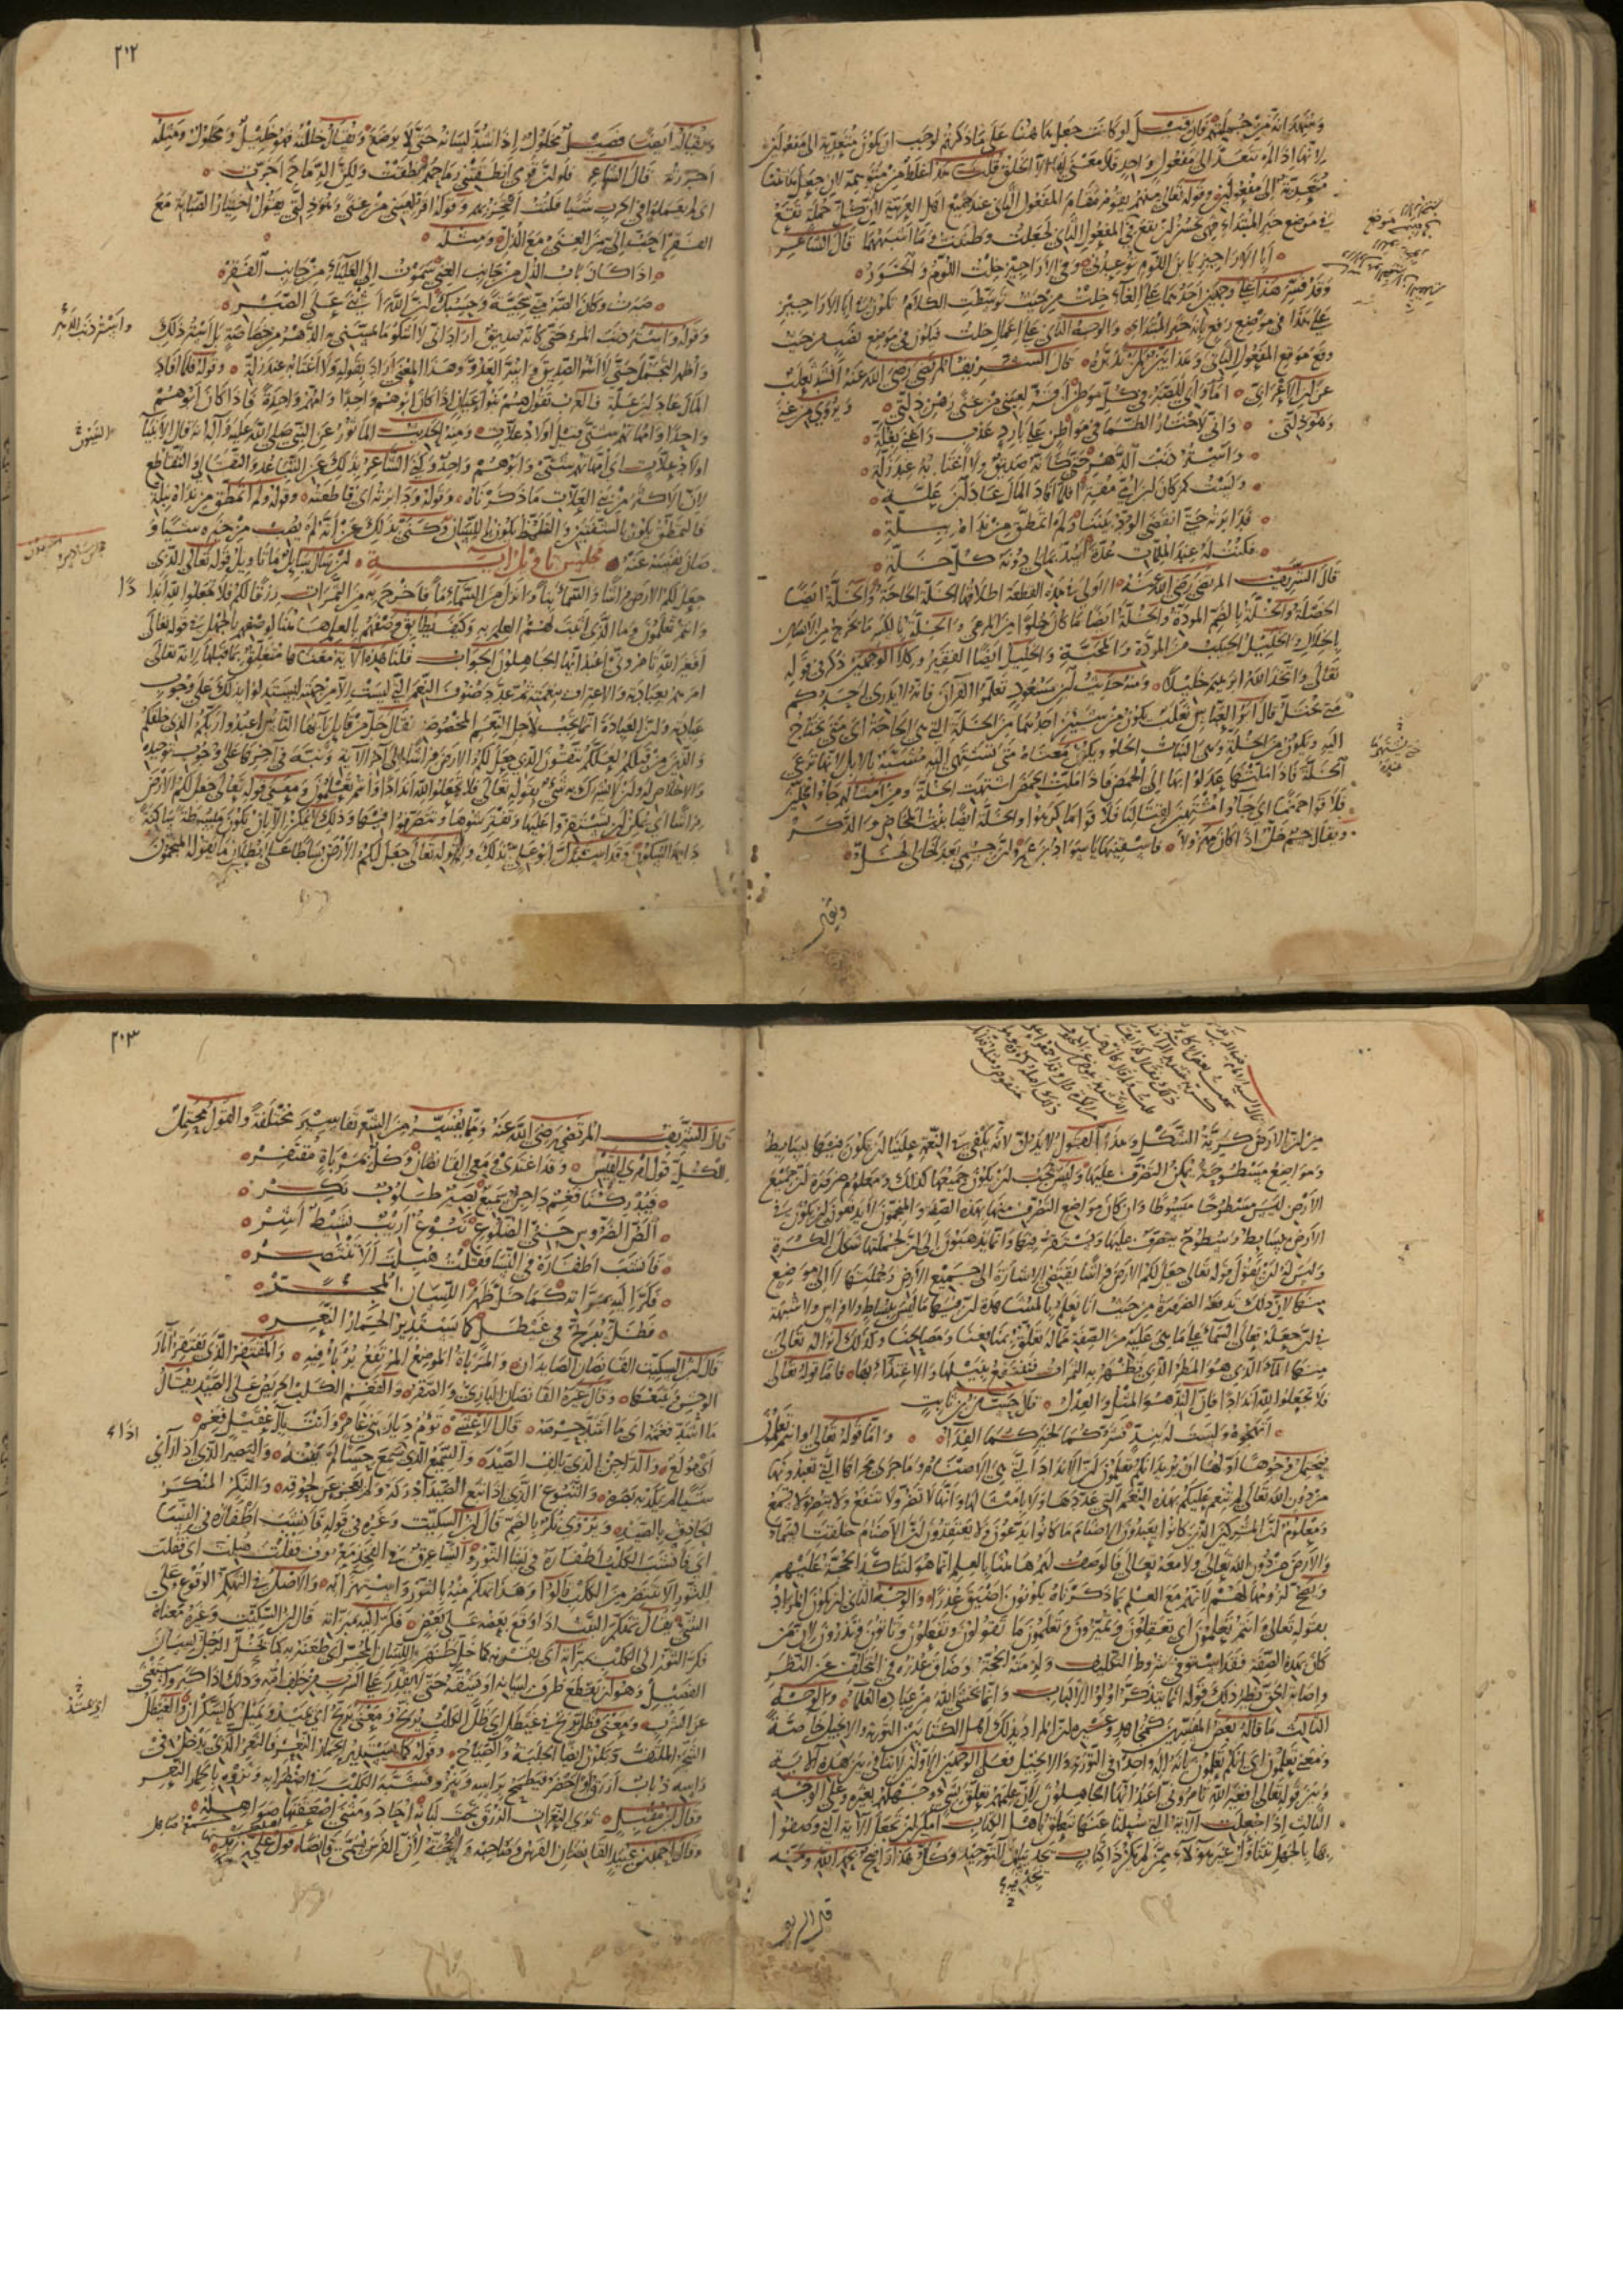 ومنهم انه من جملتهم فان قيل لو كانت جعل هاهنا على ما ذكرتم لوجب ان يكون متعدية الى مفعولين
لانها اذا لم تتعد الا الى مفعول واحد فلا معنى لها الا الخلق قلت هذا غلط من متوهمه لان جعل هاهنا
متعدية الى مفعولين وقوله تعالى منهم يقوم مقام المفعول الثاني عند جميع اهل العربية لان كل جملة تقع
في موضع خبر المبتداء فهي تحسن ان تقع في المفعول الثاني لجعلت وظننت وما اشبههما قال الشاعر
ابا الاراجيز يا بن اللوم توعدني وفي الاراجيز خلت اللوم والخور
وقد فسر هذا على وجهين احدهما على الغاء خلت من حيث توسطت الكلام فيكون في الاراجيز
على هذا في موضع رفع بانه خبر المبتداء والوجه الثاني على اعمال خلت فيكون في موضع نصب من حيث
وقع موقع المفعول الثاني وهذا بين لمن تدبره قال الشريف المرتضى رضي الله عنه انشد ثعلب
عن ابن الاعرابي اما واى للصبر في كل موطن اقر لعيني من غنى رهن ذلتي ويروى من غنى
وهو ذلتي واني لاختار الظما في مواطن على بارد عذب واغنى بغلة
واستر ذنب الدهر حتى كانه صديق ولا اغتابه عند زلة
ولست كمن كان ابن امي مقترا فلما افاد المال عاد ابن علة
فدابرته حتى انقضى الود بيننا ولم اتمطق من نداه ببلة
فكنت له عند الملمات عدة اسد بمالي دونه كل خلة
قال الشريف المرتضى رضي الله عنه
الخصلة والخلة بالضم المودة والخلة ايضا ما كان حلوا من المرعى والخلة بالكسر ما يخرج من الاسنان
بالخلال والخليل الحبيب من المودة والمحبة والخليل ايضا الفقير وكلا الوجهين ذكر في قوله
تعالى واتخذ الله ابرهيم خليلا ومنه حديث ابن مسعود تعلموا القرآن فانه لا يدري احدكم
متى يختل قال ابو العباس ثعلب يكون من شيئين احدهما من الخلة التي هي الحاجة اى متى يحتاج
اليه ويكون من الخلة وهي النبات الحلو ويكون معناه متى يشتهي اليه مشبه بالابل لانها ترعى
الخلة فاذا ملتها عدلوا بها الى الحمض فاذا ملت الحمض اشتهت الخلة ومن امثالهم جاوا مخلين
فلاقوا حمضا اى جاوا مشتهين لقتالنا فلاقوا ما كرهوا والخلة ايضا بنت المخاض والذكر
ويقال جسم خل اذا كان مهزولا فاسقنيها يا سواد بن عمرو ان جسمي بعد خالي لخل
ويقال
٢٠٢
ويقال ايضا فصيل مخلول اذا شد لسانه حتى لا يرضع ويقال خللته فهو خليل ومخلول ومثله
اجررته قال الشاعر فلو ان قومي انطقتني رماحهم نطقت ولكن الرماح اجرت
اى لم يعملوا في الحرب شيا فكنت افتخر به وقوله اقر لعيني من غنى وهو ذلتي يقول اختيار القناعة مع
الفقر احب الي من الغنى مع الذل ومثله
اذا كان باب الذل من جانب الغنى سموت الى العلياء من جانب الفقر
صبرت وكان الصبر مني سجية وحسبك ان الله اثنى على الصبر
وقوله واستر ذنب الدهر حتى كانه صديق اراد اني لا اشكو ما يمسني به الدهر من خصاصة بل استر ذلك
واظهر التجمل حتى لا اسر الصديق واسر العدو وهذا المعنى اراد بقوله ولا اغتابه عند زلة وقوله فلما افاد
المال عاد ابن علة فالعرب تقول هم بنو اعيان اذا كان ابوهم واحدا وامهم واحدة فاذا كان ابوهم
واحدا وامهاتهم شتى قيل اولاد علات ومنه الحديث الماثور عن النبي صلى الله عليه وآله انه قال الانبياء
اولاد علات اى امهاتهم شتى وابوهم واحد وكنى الشاعر بذلك عن التباعد والتقالي والتقاطع
لان الاكثر من بني العلات ما ذكرناه وقوله ودابرته اى قاطعته وقوله ولم اتمطق من نداه ببلة
فالتمطق يكون بالشفتين والتلمظ يكون باللسان وكنى بذلك عن انه لم يصب من خيره شيا و
صان نفسه عنه مجلس تاويل آية ان سال سايل ما تاويل قوله تعالى الذي
جعل لكم الارض فراشا والسماء بناء وانزل من السماء ماء فاخرج به من الثمرات رزقا لكم فلا تجعلوا لله اندادا
وانتم تعلمون وما الذي اثبت لهم العلم به وكيف يطابق وصفهم بالعلم هاهنا لوصفهم بالجهل في قوله تعالى
افغير الله تامروني اعبد ايها الجاهلون الجواب قلنا هذه الآية معناها متعلق بما قبلها لانه تعالى
امرهم بعبادته والاعتراف بنعمته ثم عدد صنوف النعم التي ليست الا من جهته ليستدلوا بذلك على وجوب
عبادته وان العبادة انما تجب لاجل النعم المخصوصة فقال جل من قائل يا ايها الناس اعبدوا ربكم الذي خلقكم
والذين من قبلكم لعلكم تتقون الذي جعل لكم الارض فراشا الى آخر الآية ونبه في آخرها على وجوب توحيده
والاخلاص له وان لا يشرك به شيء بقوله تعالى فلا تجعلوا لله اندادا وانتم تعلمون ومعنى قوله تعالى جعل لكم الارض
فراشا اى يمكن ان تستقروا عليها وتفترشوها وتتصرفوا فيها وذلك لا يمكن الا بان تكون مبسوطة ساكنة
دايمة السكون وقد استدل ابو علي بذلك وبقوله تعالى جعل لكم الارض بساطا على بطلان ما يقوله المنجمون
واستر ذنب الدهر
من ان الارض كرية الشكل وهذا القدر لا يدل لانه يكفي في النعمة علينا ان يكون فيها بسايط
ومواضع مسطوحة يمكن التصرف عليها وليس يجب ان يكون جميعها كذلك ومعلوم ضرورة ان جميع
الارض ليس مسطوحا مبسوطا وان كان مواضع التصرف منها بهذه الصفة والمنجمون لا يدفعون ان يكون في
الارض بسايط وسطوح يتصرف عليها ويستقر فيها وانما يذهبون الى ان لجملتها شكل الكرة
وليس له ان يقول قوله تعالى جعل لكم الارض فراشا يقتضي الاشارة الى جميع الارض وجملتها لا الى مواضع
منها لان ذلك تدفعه الضرورة من حيث انا نعلم بالمشاهدة ان فيها ما ليس ببساط ولا فراش ولا شبهة
في ان جعله تعالى السماء على ما هي عليه من الصفة مما له تعلق بمنافعنا ومصالحنا وكذلك انزاله تعالى
منها الماء الذي هو المطر الذي تظهر به الثمرات فننتفع بنيلها والاغتذاء بها فاما قوله تعالى
فلا تجعلوا لله اندادا فان الند هو المثل والعدل قال حسان بن ثابت
اتهجوه ولست له بند فشركما لخيركما الفداء واما قوله تعالى وانتم تعلمون
يحتمل وجوها اولها ان يريد انكم تعلمون ان الانداد التي هي الاصنام وما جرى مجراها التي تعبدونها
من دون الله تعالى لم تنعم عليكم بهذه النعم التي عددها ولا بامثالها وانها لا تضر ولا تنفع ولا تبصر ولا تسمع
ومعلوم ان المشركين الذين كانوا يعبدون الاصنام ما كانوا يدعون ولا يعتقدون ان الاصنام خلقت السماء
والارض من دون الله تعالى ولا معه تعالى فالوصف لهم هاهنا بالعلم انما هو لتاكيد الحجة عليهم
ويصح لزومها لهم لانهم مع العلم بما ذكرناه يكونون اضيق عذرا والوجه الثاني ان يكون المراد
بقوله تعالى وانتم تعلمون اى تعقلون وتميزون وتعلمون ما تقولون وتفعلون وتاتون وتذرون لان من
كان بهذه الصفة فقد استوفى شروط التكليف ولزمته الحجة وضاق عذره في التخلف عن النظر
واصابة الحق نظير ذلك قوله انما يتذكر اولوا الالباب وانما يخشى الله من عباده العلماء والوجه
الثالث ما قاله بعض المفسرين كمجاهد وغيره ان المراد بذلك اهل الكتابين التورية والانجيل خاصة
ومعنى تعلمون اى انكم تعلمون انه اله واحد في التورية والانجيل فعلى الوجهين الاولين لا تنافي بين هذه الآية
وبين قوله تعالى افغير الله تامروني اعبد ايها الجاهلون لان علمهم تعلق بشي وجهلهم بغيره وعلى الوجه
الثالث اذا جعلت الآية التي سئلنا عنها تختص باهل الكتاب امكن ان تجعل الآية التي وصفوا
فيها بالجهل تتناول غير هولاء ممن لم يكن ذا كتاب يجد فيه التوحيد وكل هذا واضح بحمد الله ومنه
قال الشريف
٢٠٣
قال الشريف المرتضى رضي الله عنه ومما يفسر من الشعر تفاسير مختلفة والقول محتمل
للكل قول امرئ القيس وقد اغتدي ومعي القانصان وكل بمربأة مقتفر
فيدركنا فغم داجن سميع بصير طلوب نكر
الص الضروس حني الضلوع تبوع اريب نشيط اشر
فانشب اظفاره في النسا فقلت هبلت الا تنتصر
فكر اليه بمبراته كما خل ظهر اللسان المجر
فظل يرنح في غيطل كما يستدير الحمار النعر
قال ابن السكيت القانصان الصايدان والمربأة الموضع المرتفع يربأ فيه والمقتفر الذي يقتفر آثار
الوحش ويتبعها وقال غيره القانصان البازي والصقر والفغم الكلب الحريص على الصيد يقال
ما اشد فغمه اى ما اشد حرصه قال الاعشى تؤم ديار بني عامر وانت بآل عقيل فغم
اى مولع والداجن الذي يالف الصيد والسميع الذي اذا سمع حسا لم يفته والبصير الذي اذا راى
شيا لم يكذبه بصره والتبوع الذي اذا تبع الصيد ادركه ولم يعجز عن لحوقه والنكر المنكر
الحاذق بالصيد ويروى نكر بالضم قال ابن السكيت وغيره في قوله فانشب اظفاره في النسا
اى فانشب الكلب اظفاره في نسا الثور والنسا عرق في الفخذ معروف فقلت هبلت اى فقلت
للثور الا تنتصر من الكلب قالوا وهذا تهكم منه بالثور واستهزاء به والاصل في التهكم الوقوع على
الشي يقال تهكم البيت اذا وقع بعضه على بعض فكر اليه بمبراته قال ابن السكيت وغيره معناه
فكر الثور الى الكلب بمبراته اى بقرنه كما خل ظهر اللسان المجر اى طعنه به كما يخل الرجل لسان
الفصيل وهو ان يقطع طرف لسانه او يشقه حتى لا يقدر على الشرب من خلف امه وذلك اذا كبر واستغنى
عن الشرب ومعنى فظل يرنح في غيطل اى ظل الكلب يرنح ومعنى يرنح اى يميد ويميل كالسكران والغيطل
الشجر الملتف ويكون ايضا الجلبة والصياح وقوله كما يستدير الحمار النعر فالنعر الذي يدخل في
راسه ذباب ازرق او اخضر فيطمح براسه وينزو فشبه الكلب في اضطرابه ونزوه بالحمار النعر
وقال ابن مقبل ترى النعرات الزرق تحت لبانه احاد ومثنى اضعفتها صواهله
وقال احمد بن عبيد القانصان الفرس وصاحبه